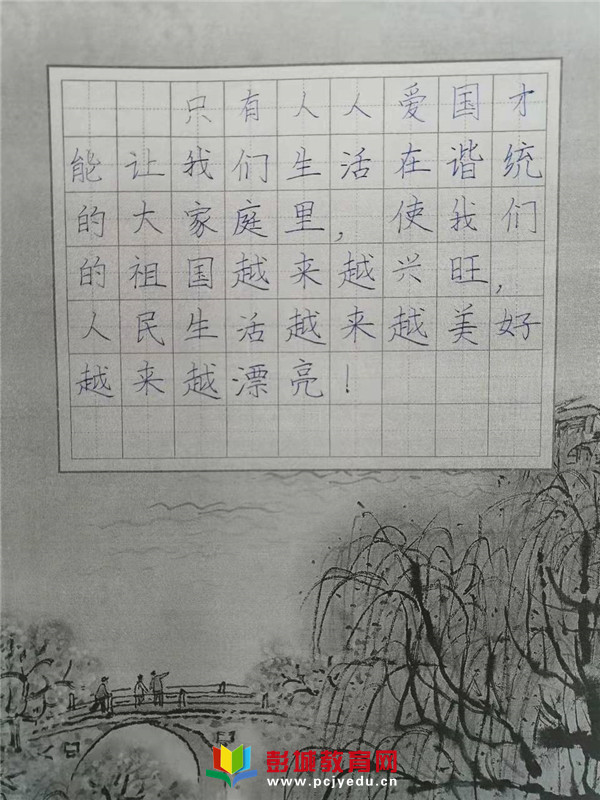 只有人人爱国才
能让我们生活在谐统
的大家庭里，使我们
的祖国越来越兴旺，
人民生活越来越美好
越来越漂亮！
彭城教育网
www.pcjyedu.cn